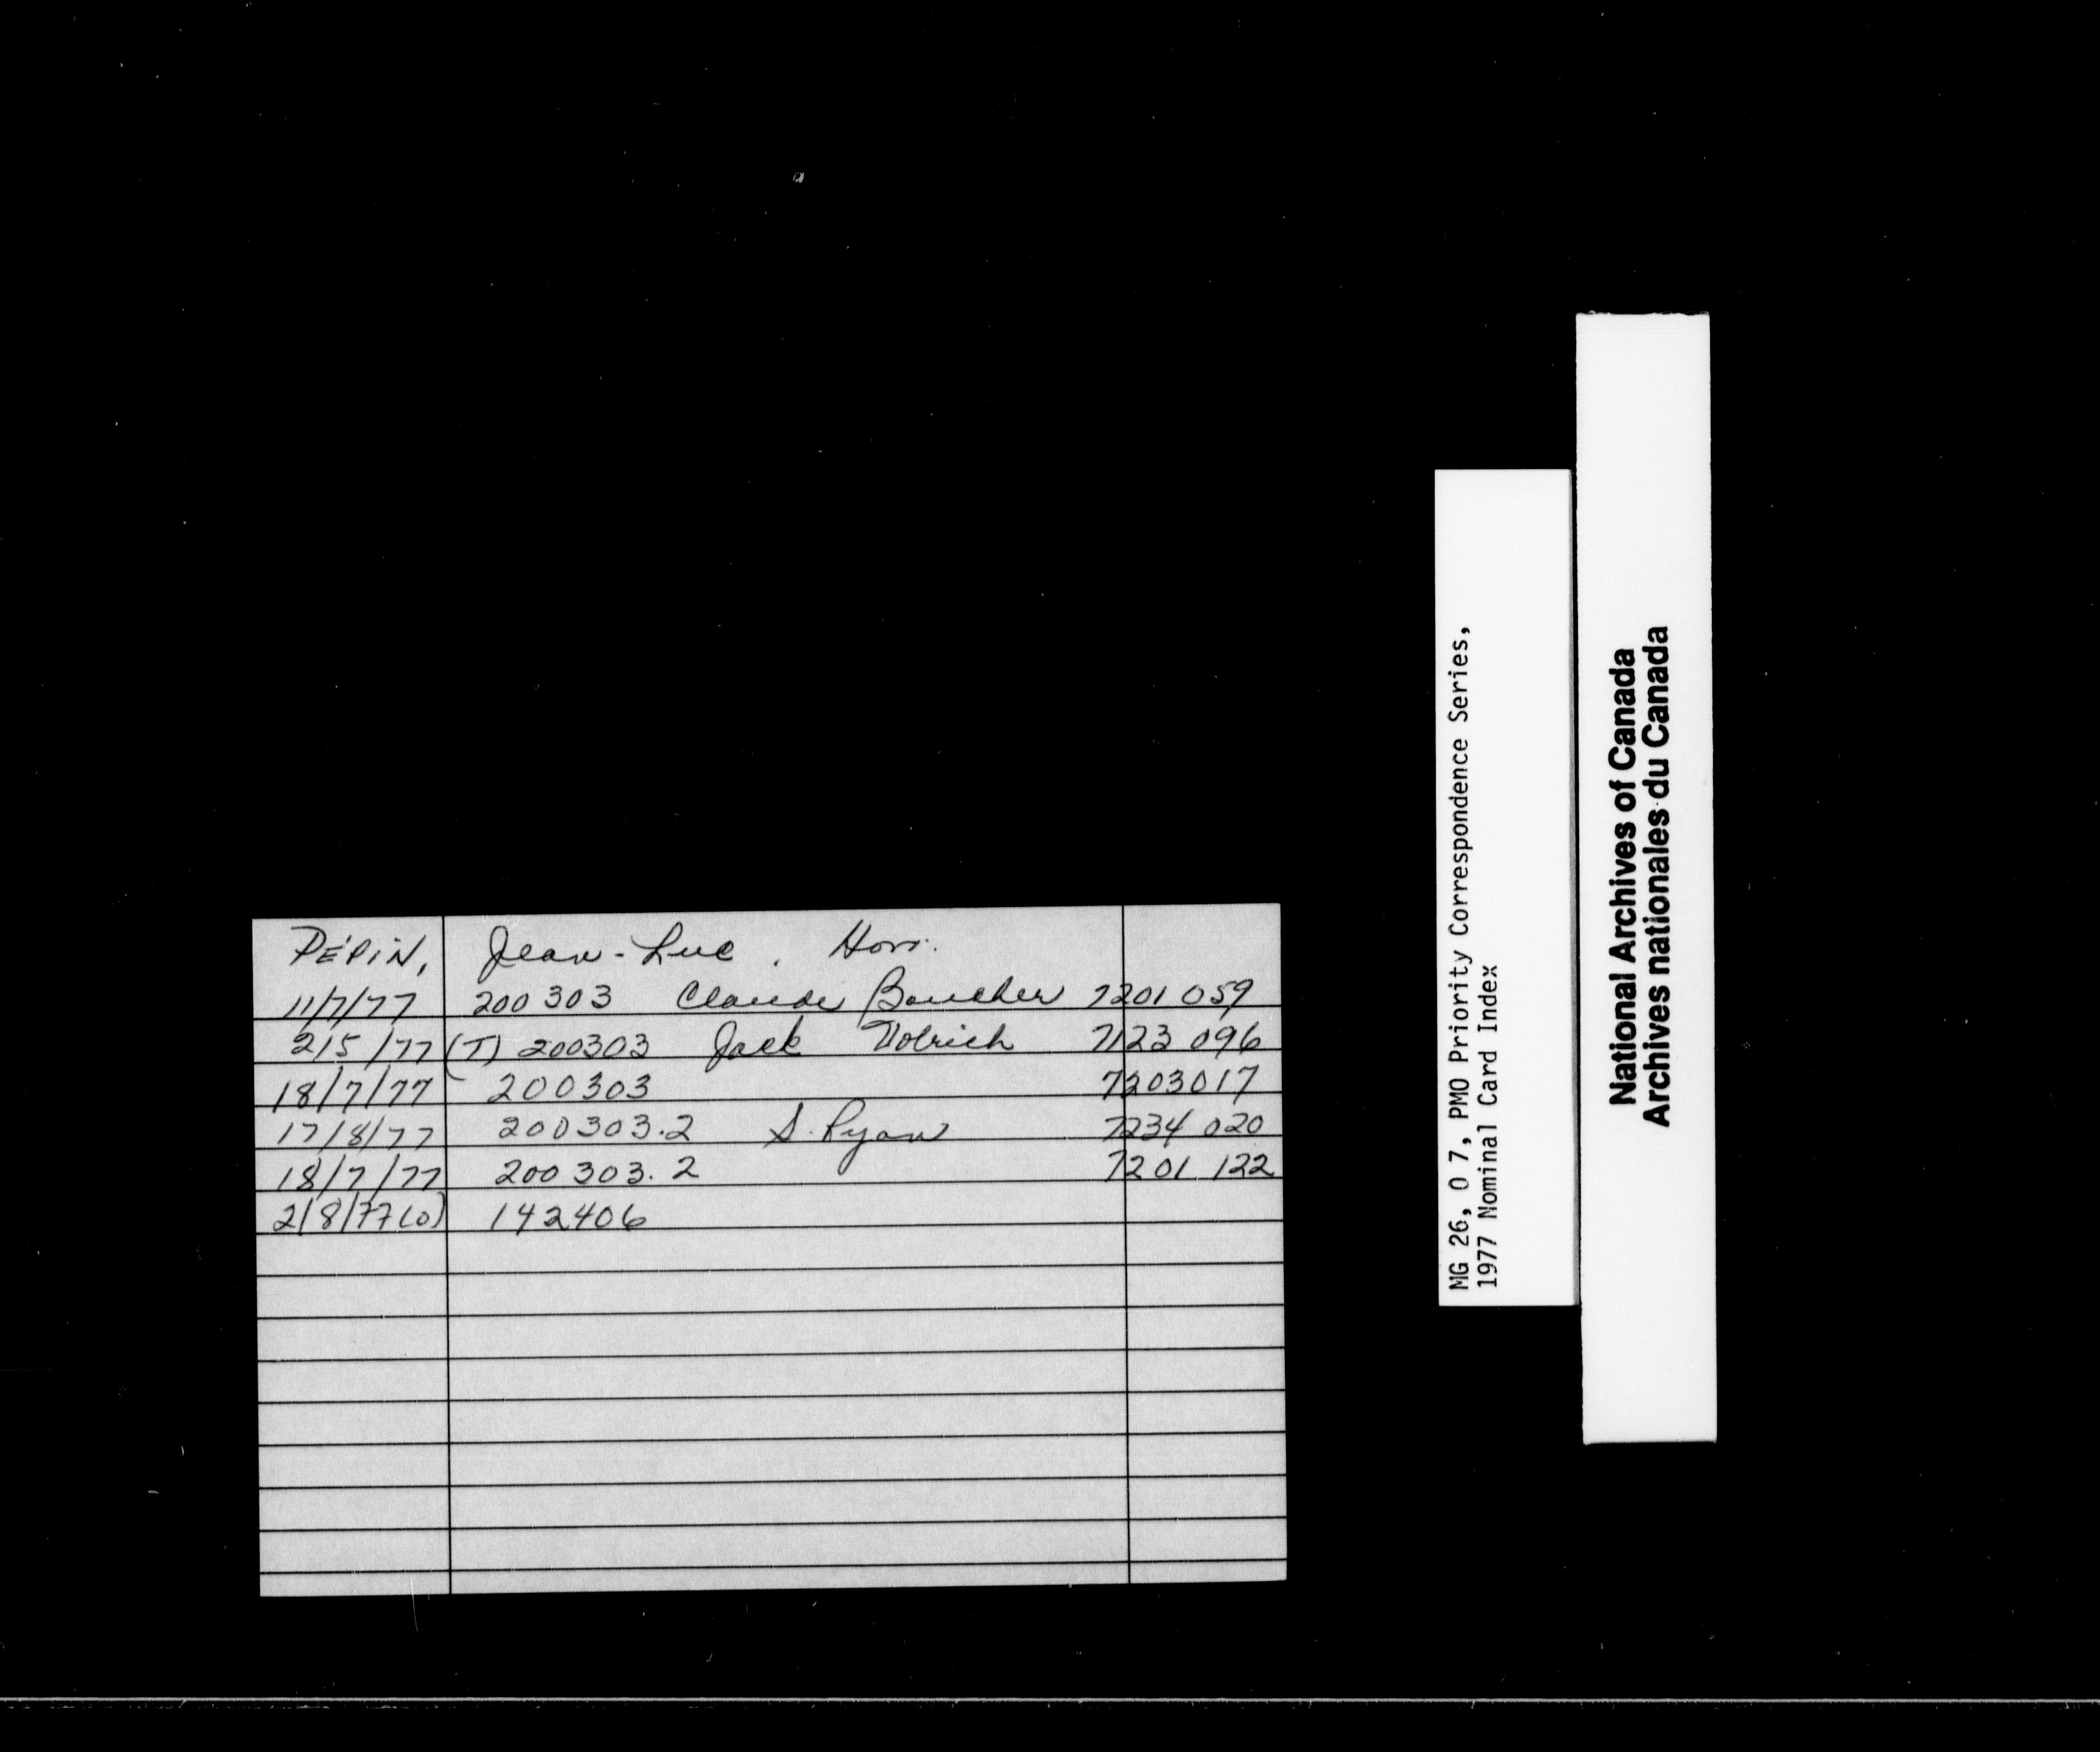 PÉPIN, Jean-Luc. Hon.
11/7/77 200 303 Claude Boucher 7201 059
2/5/77 (T) 200303 Jack 7123 096
18/7/77 200303 7203017
17/8/77 200303.2 S. Ryan 7234 020
18/7/77 200 303.2 7201 122
2/8/77(o) 142406
MG 26, O 7, PMO Priority Correspondence Series,
1977 Nominal Card Index
National Archives of Canada
Archives nationales du Canada